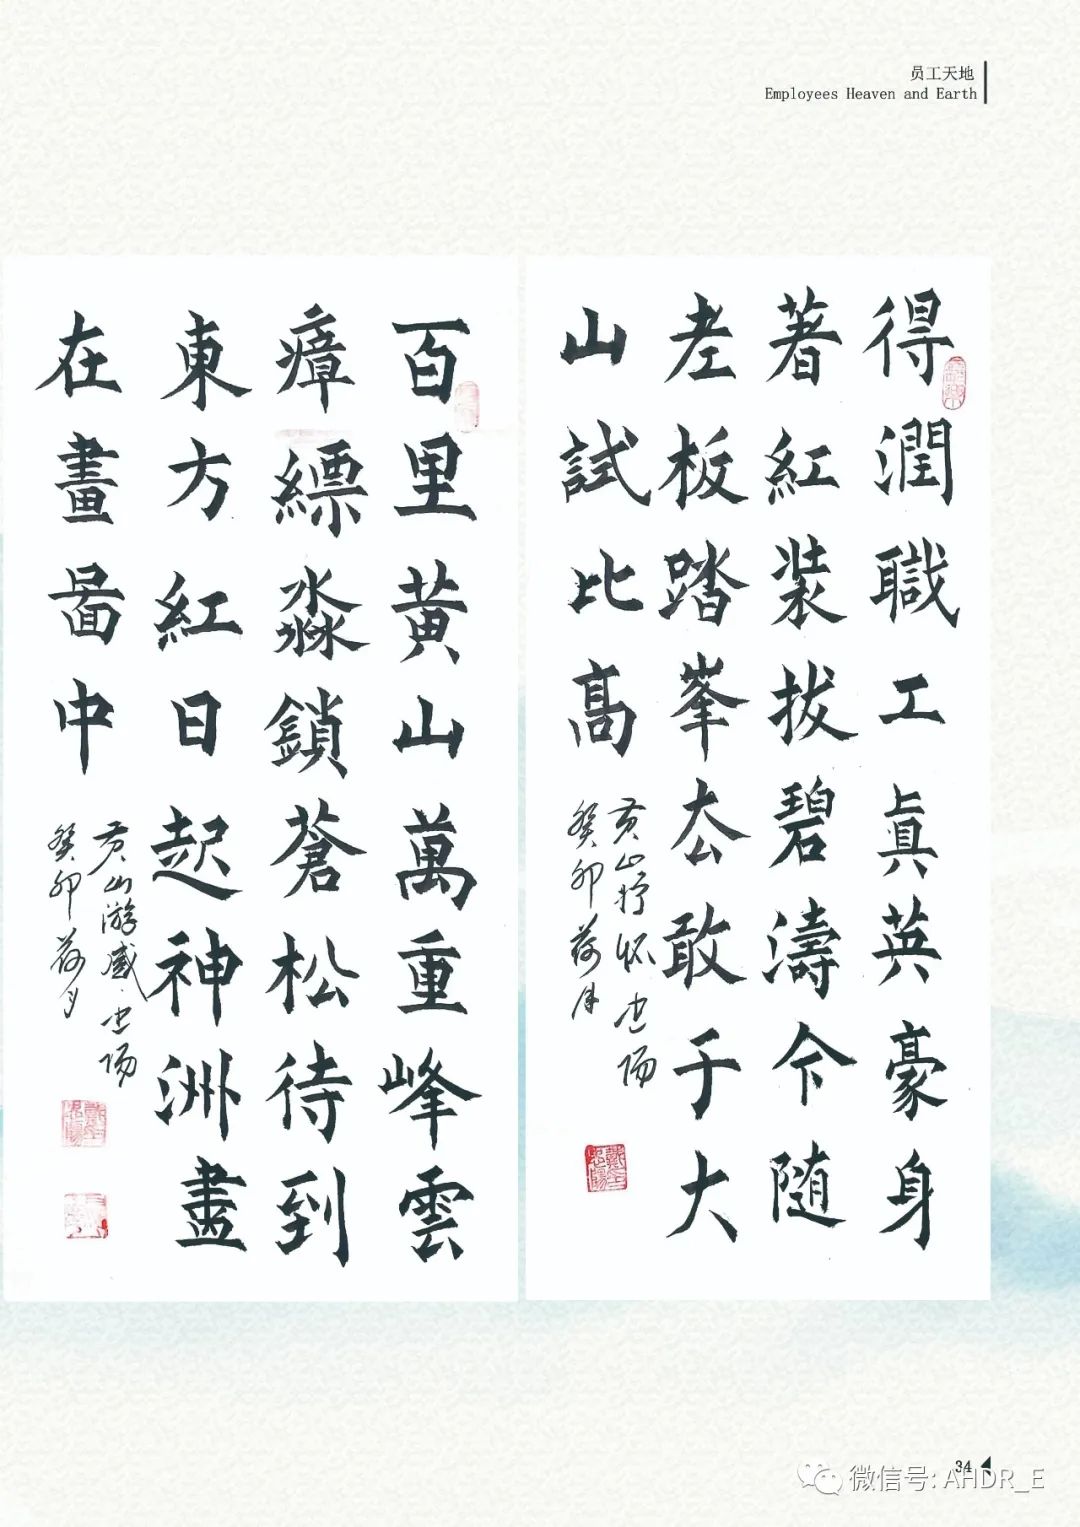 员工天地
Employees Heaven and Earth
得潤職工真英豪身
著紅装拔碧濤令随
老板踏峯去敢于大
山試比高
黄山抒怀 忠阳
癸卯荷月
百里黄山萬重峰雲
瘴縹淼鎖蒼松待到
東方紅日起神洲盡
在畫啚中
黄山游感 忠阳
癸卯荷月
34
微信号: AHDR_E